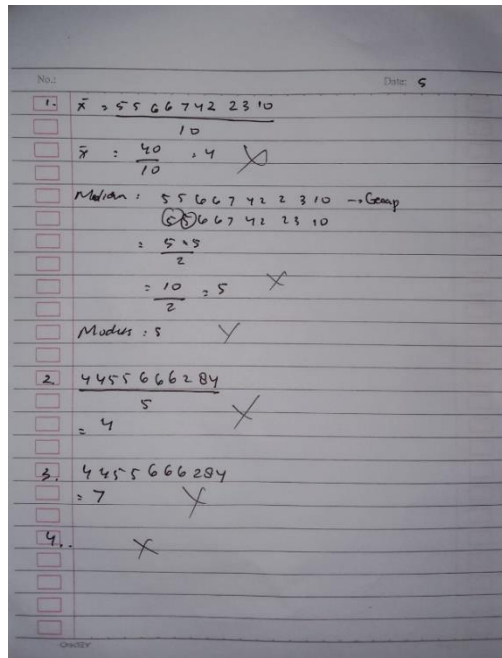 No.: Date: 5
1. x̄ = 5 5 6 6 7 4 2 2 3 10
10
x̄ = 40 = 4
10
Median : 5 5 6 6 7 4 2 2 3 10 → Genap
5 5 6 6 7 4 2 2 3 10
= 5 + 5
2
= 10 = 5
2
Modus : 5
2. 4 4 5 5 6 6 6 2 8 4
5
= 4
3. 4 4 5 5 6 6 6 2 8 4
= 7
4.